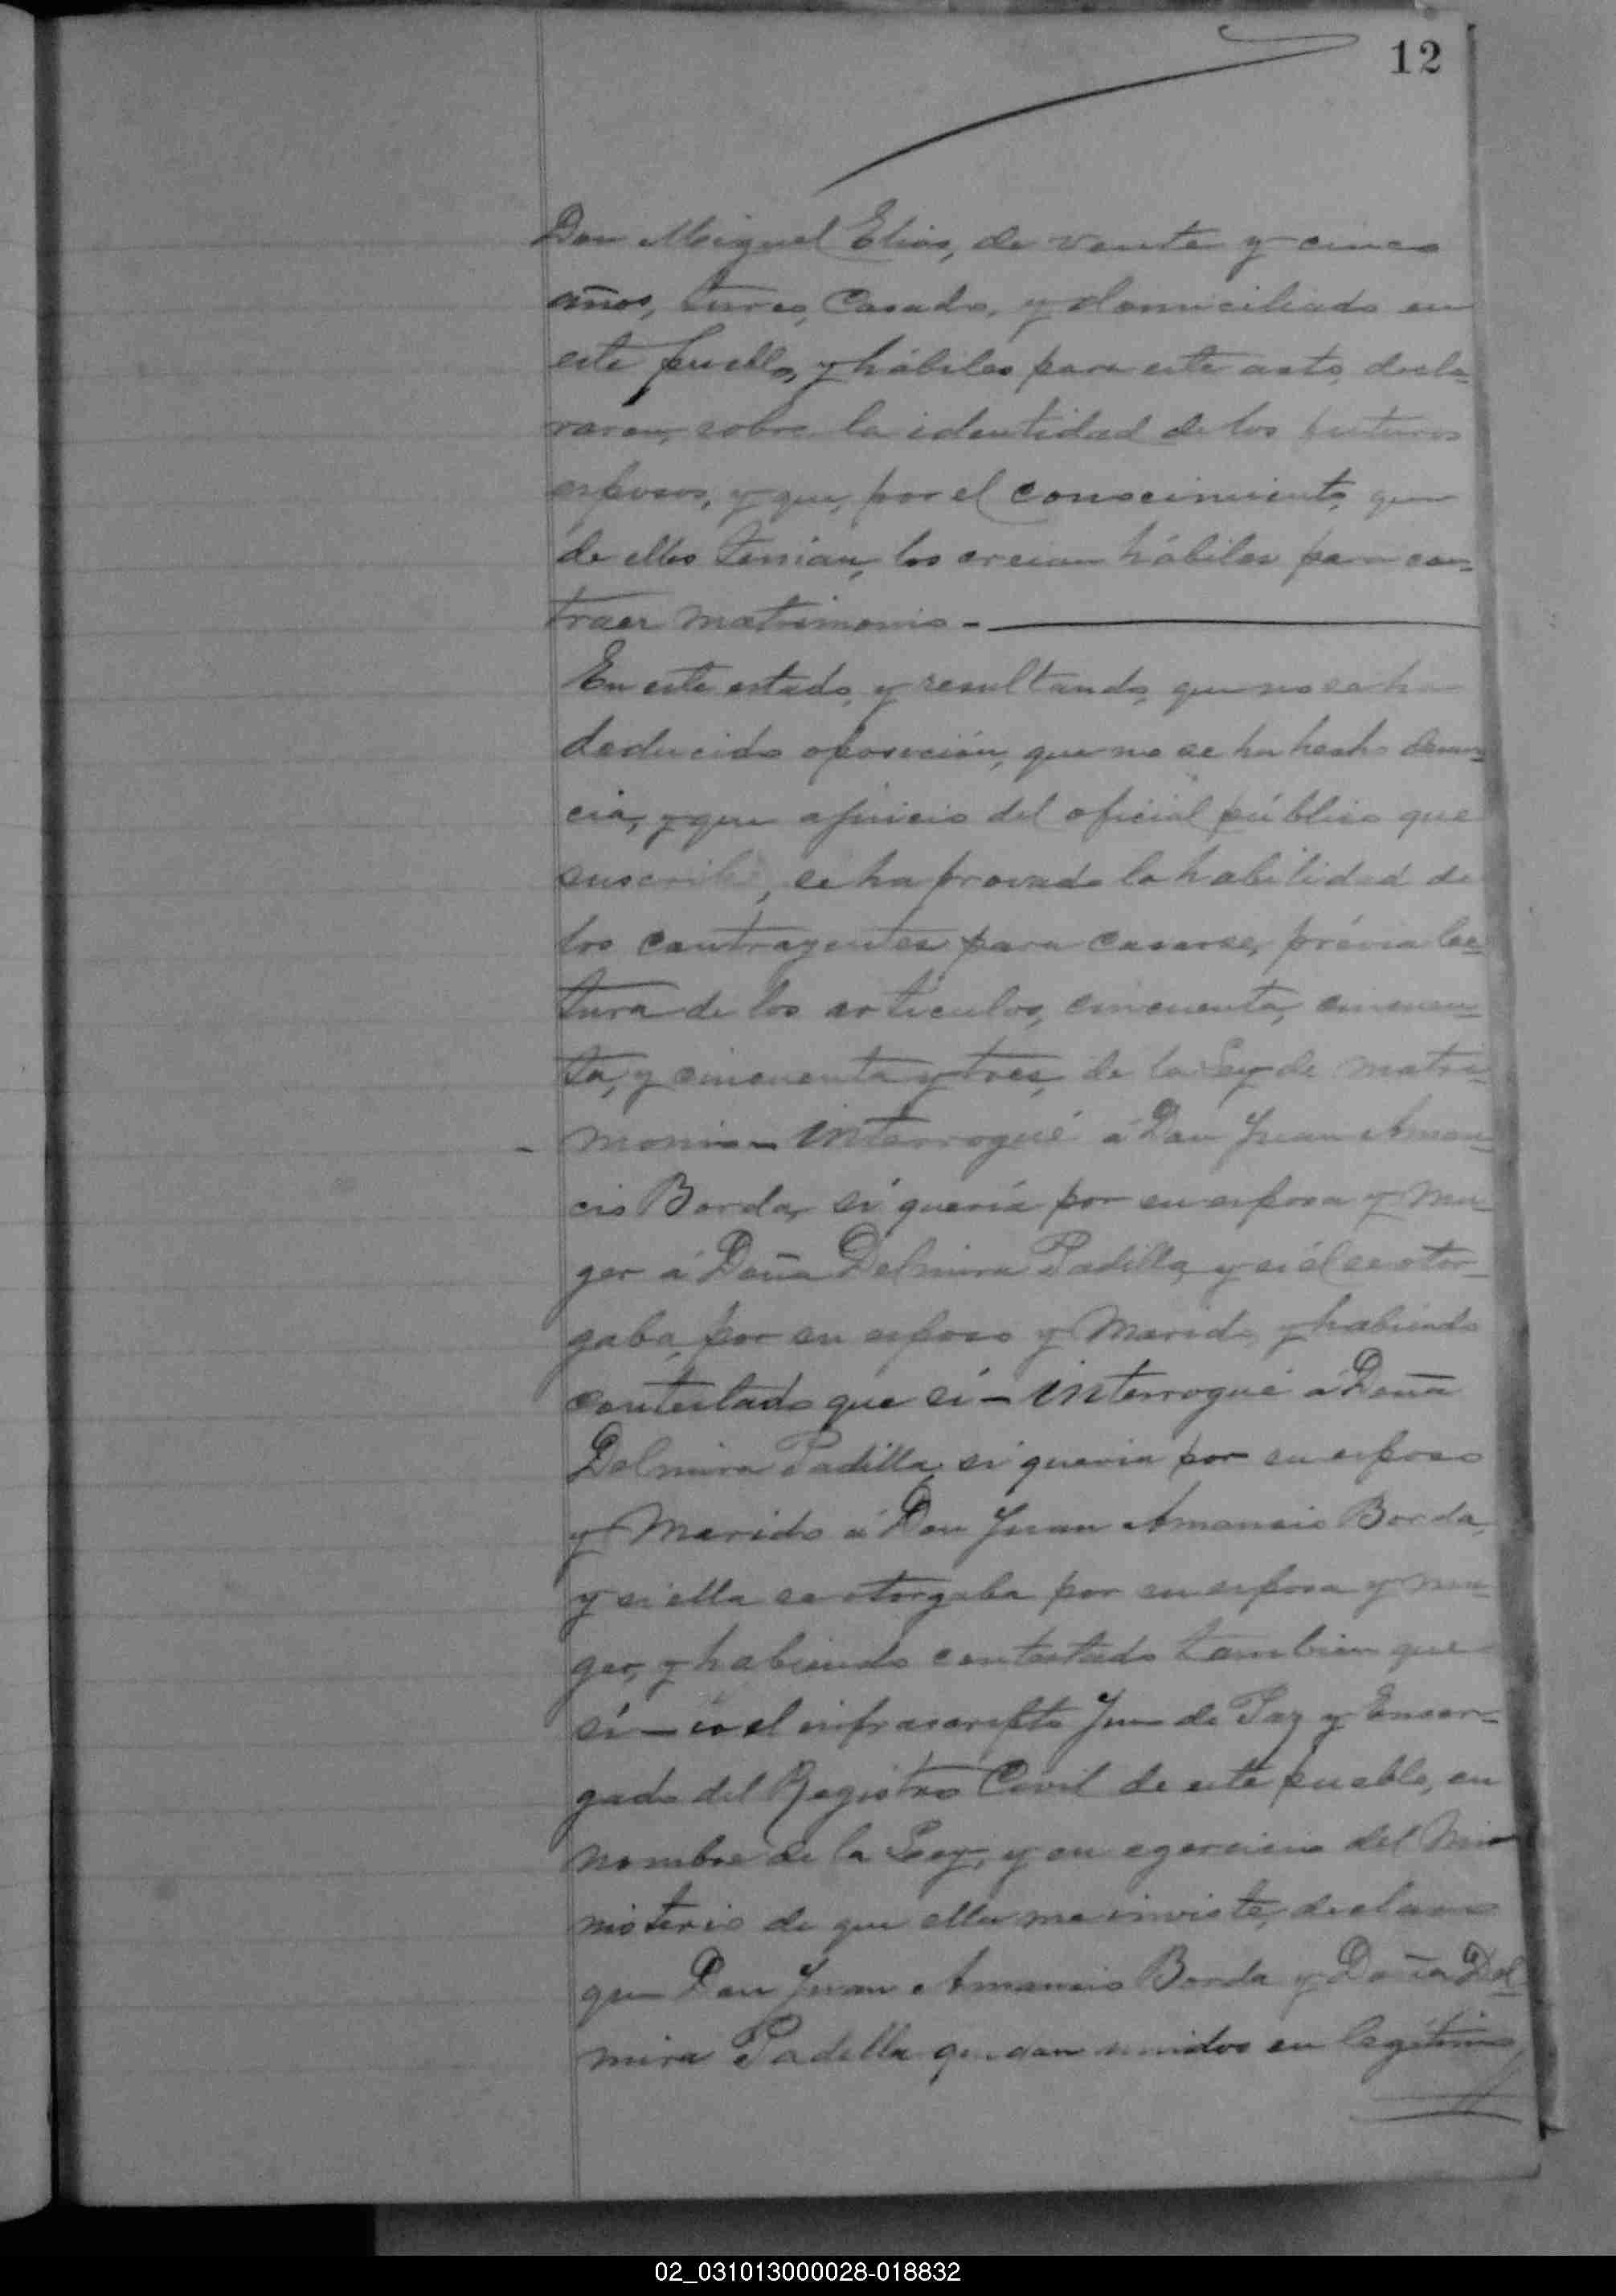 12
Don Miguel Elias, de veinte y cinco
años, turco, Casado, y domiciliado en
este pueblo, y hábiles para este acto, decla-
raron, sobre la identidad de los futuros
esposos, y que, por el conocimiento, que
de ellos tenian, los creian hábiles para con-
traer matrimonio.-
En este estado, y resultando, que no se ha
deducido oposición, que no se ha hecho denun-
cia, y que a juicio del oficial público que
suscribe, se ha provado la habilidad de
los contrayentes para casarse, prévia lec-
tura de los articulos, cincuenta, cincuen-
ta, y cincuenta y tres, de la Ley de matri-
monio - interrogué á Don Juan Aman-
cio Borda, si queria por su esposa y mu-
ger á Doña Delmira Padilla, y si él se otor-
gaba, por su esposo y Marido, y habiendo
contestado que sí - interrogué á Doña
Delmira Padilla, si queria por su esposo
y Marido á Don Juan Amancio Borda,
y si ella se otorgaba por su esposa y mu-
ger, y habiendo contestado tambien que
sí - io el infrascripto Juez de Paz y Encar-
gado del Registro Civil de este pueblo, en
nombre de la Ley, y en egercicio del Mi-
nisterio de que ella me inviste, declaro
que Don Juan Amancio Borda y Doña Del-
mira Padilla quedan unidos en legítimo
02_031013000028-018832